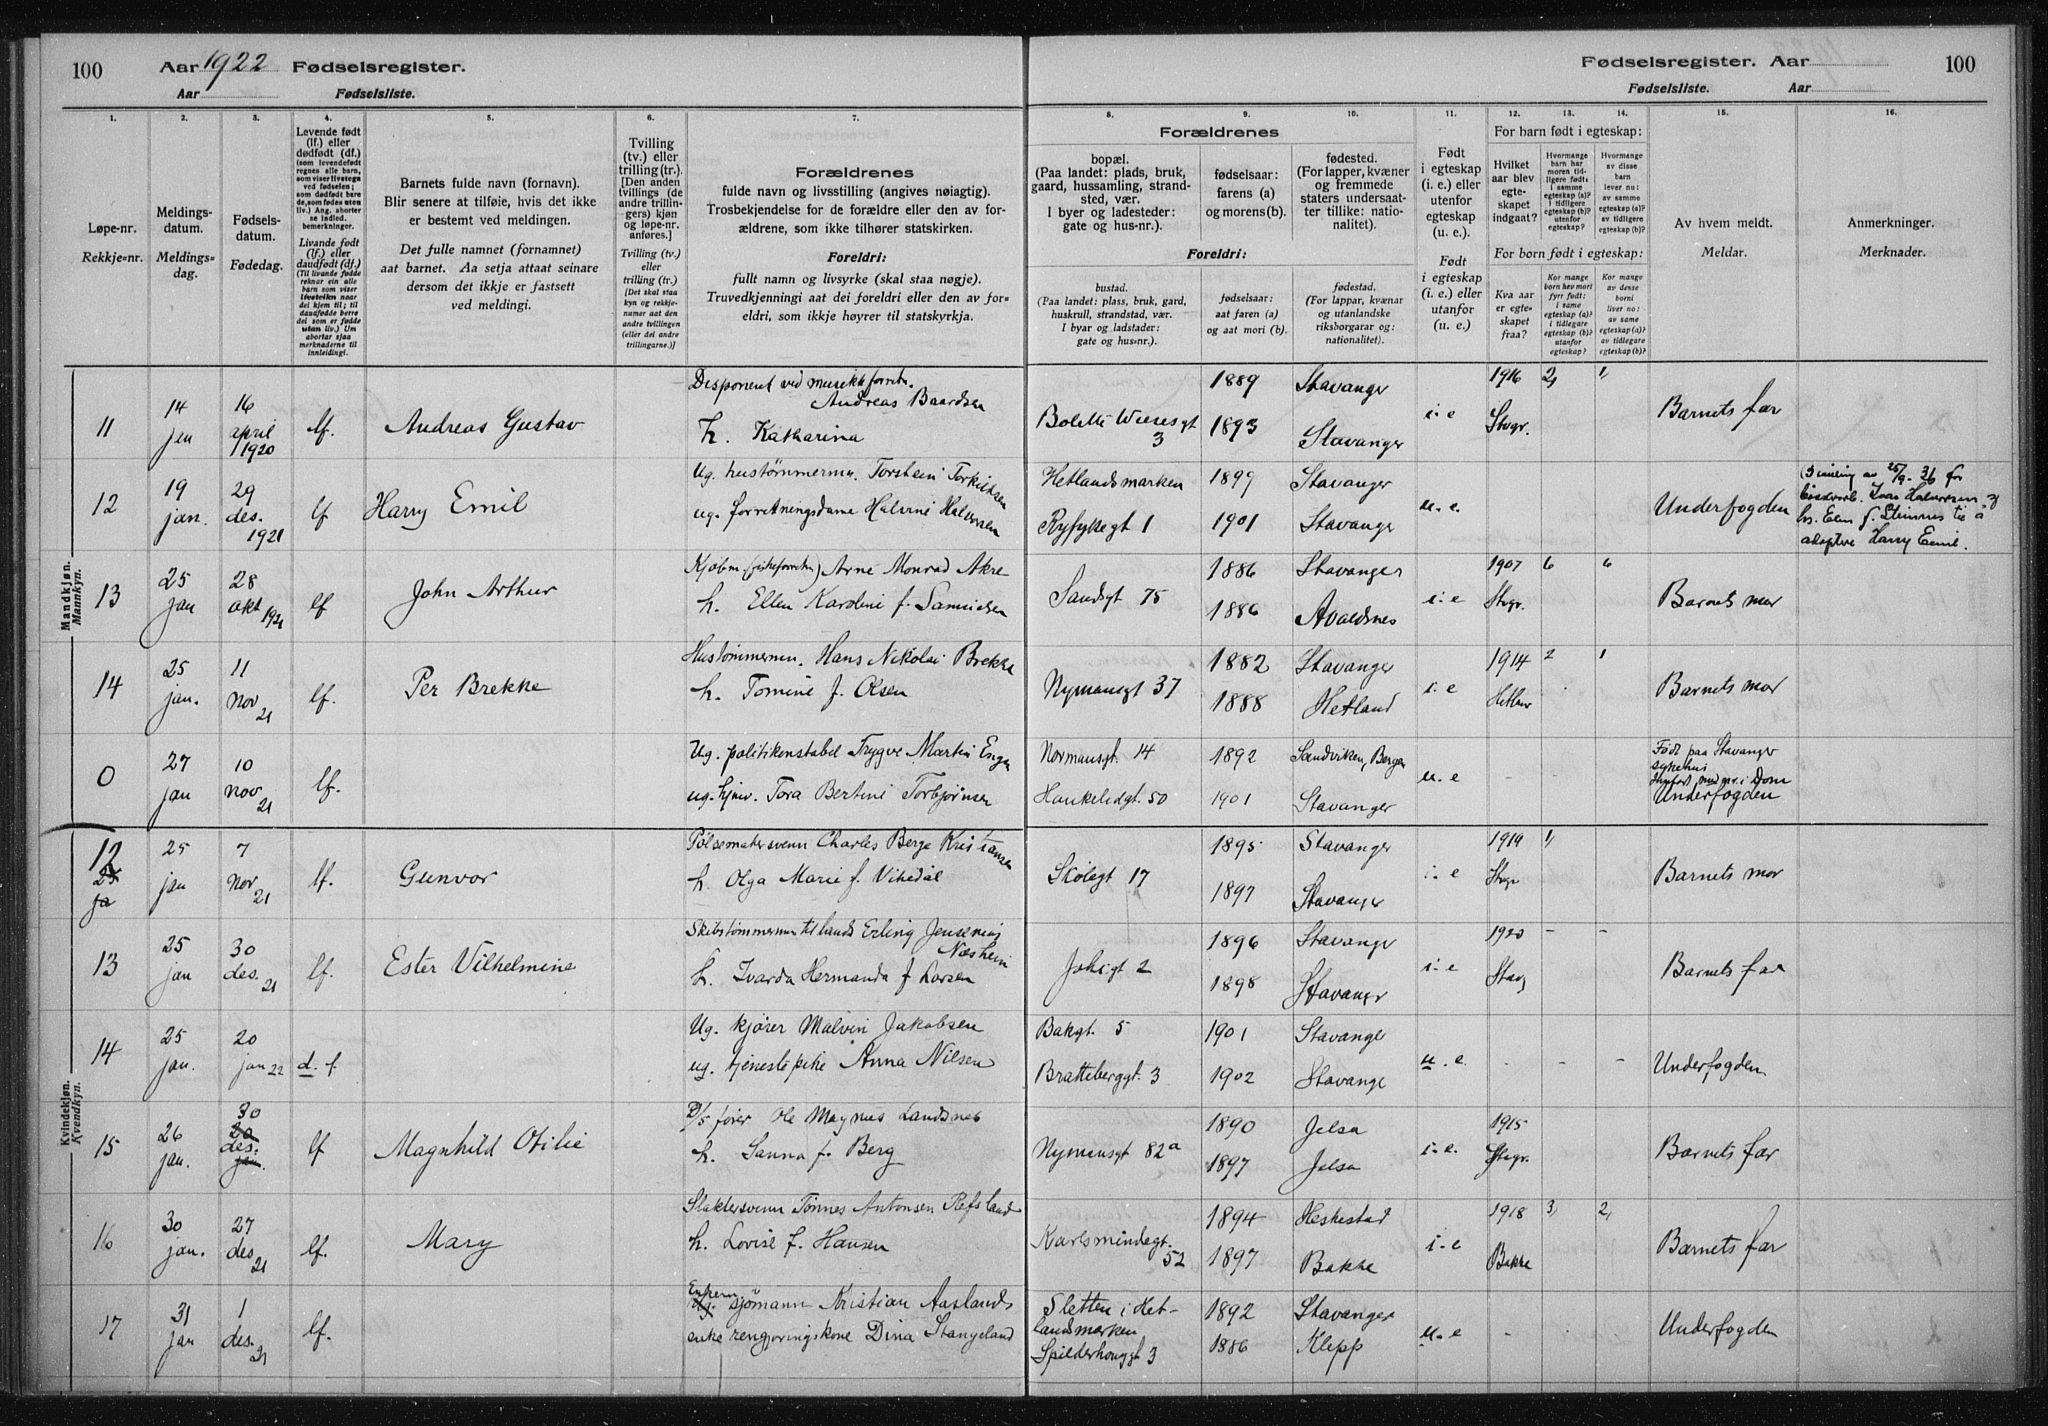 100 Aar 1922 Fødselsregister.
Aar Fødselsliste.
Fødselsregister. Aar 100
Fødselsliste. Aar
1. 2. 3. 4. 5. 6. 7. 8. 9. 10. 11. 12. 13. 14. 15. 16.
Løpe-nr.
Rekkje-nr.
Meldings-
datum.
Meldings-
dag.
Fødsels-
datum.
Fødedag.
Levende født
(lf.) eller
dødfødt (df.)
(som levendefødt
regnes alle barn,
som viser livstegn
ved fødselen;
som dødfødt bare
de, som fødes uten
liv.) Ang. aborter
se indled.
bemerkninger.
Livande født
(lf.) eller
daudfødt (df.)
(Til livande fødde
reknar ein alle
born som viser
livsteikn naar
dei kjem til; til
daudfødde berre
dei som er fødde
utan liv.) Um
abortar sjaa
merknaderne til
innleidingi.
Barnets fulde navn (fornavn).
Blir senere at tilføie, hvis det ikke
er bestemt ved meldingen.
Det fulle namnet (fornamnet)
aat barnet. Aa setja attaat seinare
dersom det ikkje er fastsett
ved meldingi.
Tvilling
(tv.) eller
trilling (tr.)
[Den anden
tvillings (de
andre trillin-
gers) kjøn
og løpe-nr.
anføres.]
Tvilling (tv.)
eller
trilling (tr.)
[Det skal staa
kyn og rekkje-
numer aat den
andre tvillingen
(eller dei andre
trillingarne.)]
Forældrenes
fulde navn og livsstilling (angives nøiagtig).
Trosbekjendelse for de forældre eller den av for-
ældrene, som ikke tilhører statskirken.
Foreldri:
fullt namn og livsyrke (skal staa nøgje).
Truvedkjenningi aat dei foreldri eller den av for-
eldri, som ikkje høyrer til statskyrkja.
Forældrenes
bopæl.
(Paa landet: plads, bruk,
gaard, hussamling, strand-
sted, vær.
I byer og ladesteder:
gate og hus-nr.).
fødselsaar:
farens (a)
og morens (b).
fødested.
(For lapper, kvæner
og fremmede
staters undersaat-
ter tillike: natio-
nalitet).
Foreldri:
bustad.
(Paa landet: plass, bruk, gard,
huskrull, strandstad, vær.
I byar og ladstader:
gate og hus-nr.).
fødselsaar:
aat faren (a)
og aat mori (b).
fødestad.
(For lappar, kvænar
og utanlandske
riksborgarar og:
nationalitet).
Født
i egteskap
(i. e.) eller
utenfor
egteskap
(u. e.).
Født
i egteskap
(i. e.) eller
utanfor
(u. e.)
For barn født i egteskap:
Hvilket
aar blev
egte-
skapet
indgaat?
Hvormange
barn har
moren tid-
ligere født:
i samme
egteskap (a)?
i tidligere
egteskap (b)?
utenfor
egteskap?
Hvormange
av disse
barn
lever nu:
av samme
egteskap (a)?
av tidligere
egteskap (b)?
For born født i egteskap:
Kva aar
er egte-
skapet
fraa?
Kor mange
born hev mori
fyrr født:
i same
egteskap (a)?
i tidlegare
egteskap (b)?
utanfor
egteskap?
Kor mange
av desse
borni
liver no:
av same
egteskap (a)?
av tidlegare
egteskap (b)?
Av hvem meldt.
Meldar.
Anmerkninger.
Merknader.
Mandkjøn.
Mannkyn.
11 14 jan 16 april 1920 lf. Andreas Gustav
Disponent ved musikkforretn. Andreas Baardsen
h. Katharina
Bolette Wiesesgt 3 1889 1893 Stavanger Stavanger i. e 1916 Stvgr. 2, 1, Barnets far
12 19 jan. 29 des. 1921 lf Harry Emil
Ug. hustømmermn. Torstein Torkildsen
ug. forretningsdame Halvine Halvorsen
Hetlandsmarken 1899 Stavanger
Ryfylkegt 1 1901 Stavanger u. e. Underfogden
Harry Emil.
13 25 jan 28 okt 1921 lf John Arthur
Kjøbm (fiskeforretn) Arne Monrad Akre
h. Ellen Karoline f. Samuelsen
Sandsgt 75 1886 1886 Stavanger Avaldsnes i. e 1907 Stvgr. 6 6 Barnets mor
14 25 jan. 11 nov 21 lf. Per Brekke
Hustømmermn. Hans Nikolai Brekke
h. Tomine f. Olsen
Nymansgt 37 1882 1888 Stavanger Hetland i. e 1914 Hetlan 2 1 Barnets mor
0 27 jan 10 nov 21 lf.
Ug. politikonstabel Trygve Martin Engen
ug. hjmv. Tora Bertine Torbjørnsen
Normansgt. 14 1892 Sandviken, Bergen
Haukeligt. 50 1901 Stavanger u. e
Født paa Stavanger
sykehus
nr. i Dom
Underfogden
Kvindekjøn.
Kvendkyn.
12 25 ja 25 jan 7 nov 21 lf. Gunvor
Pølsemakersvenn Charles Berge Kristiansen
h. Olga Marie f. Vikedal
Skolegt 17 1895 1897 Stavanger Stavanger i. e 1919 Stvgr 1, Barnets mor
13 25 jan 30 des. 21 lf. Ester Vilhelmine
Skibstømmermn til lands Erling Jensenius Næsheim
h. Ivarda Hermanda f Larsen
Johsgt 2 1896 1898 Stavanger Stavanger i. e 1920 Stavg - - Barnets far
14 25 jan. 20 jan 22 d. f.
Ug. kjører Malvin Jakobsen
ug. tjenestepike Anna Nilsen
Bakgt. 5 1901 Stavanger
Bratteberggt. 3 1902 Stavange u. e. - - - Underfogden
15 26 jan. 30 20 des. jan. lf Magnhild Otilie
D/s fører Ole Magnus Landsnes
h. Sanna f. Berg
Nymansgt 82a 1890 1897 Jelsa Jelsa i. e. 1915 Stvgr. Barnets far
16 30 jan. 27 des 21 lf. Mary
Slaktersvenn Tønnes Antonsen Refsland
h. Lovise f. Hansen
Karlsmindegt. 52 1894 1897 Heskestad Bakke i. e 1918 Bakke 3, 2, Barnets far
17 31 jan 1 des. 21 lf.
Enkem. Ug. sjømann Kristian Aaslands
enke rengjøringskone Dina Stangeland
Sletten i Het-
landsmarken 1892 Stavanger
Spilderhouggt 3 1886 Klepp u. e - - - Underfogden